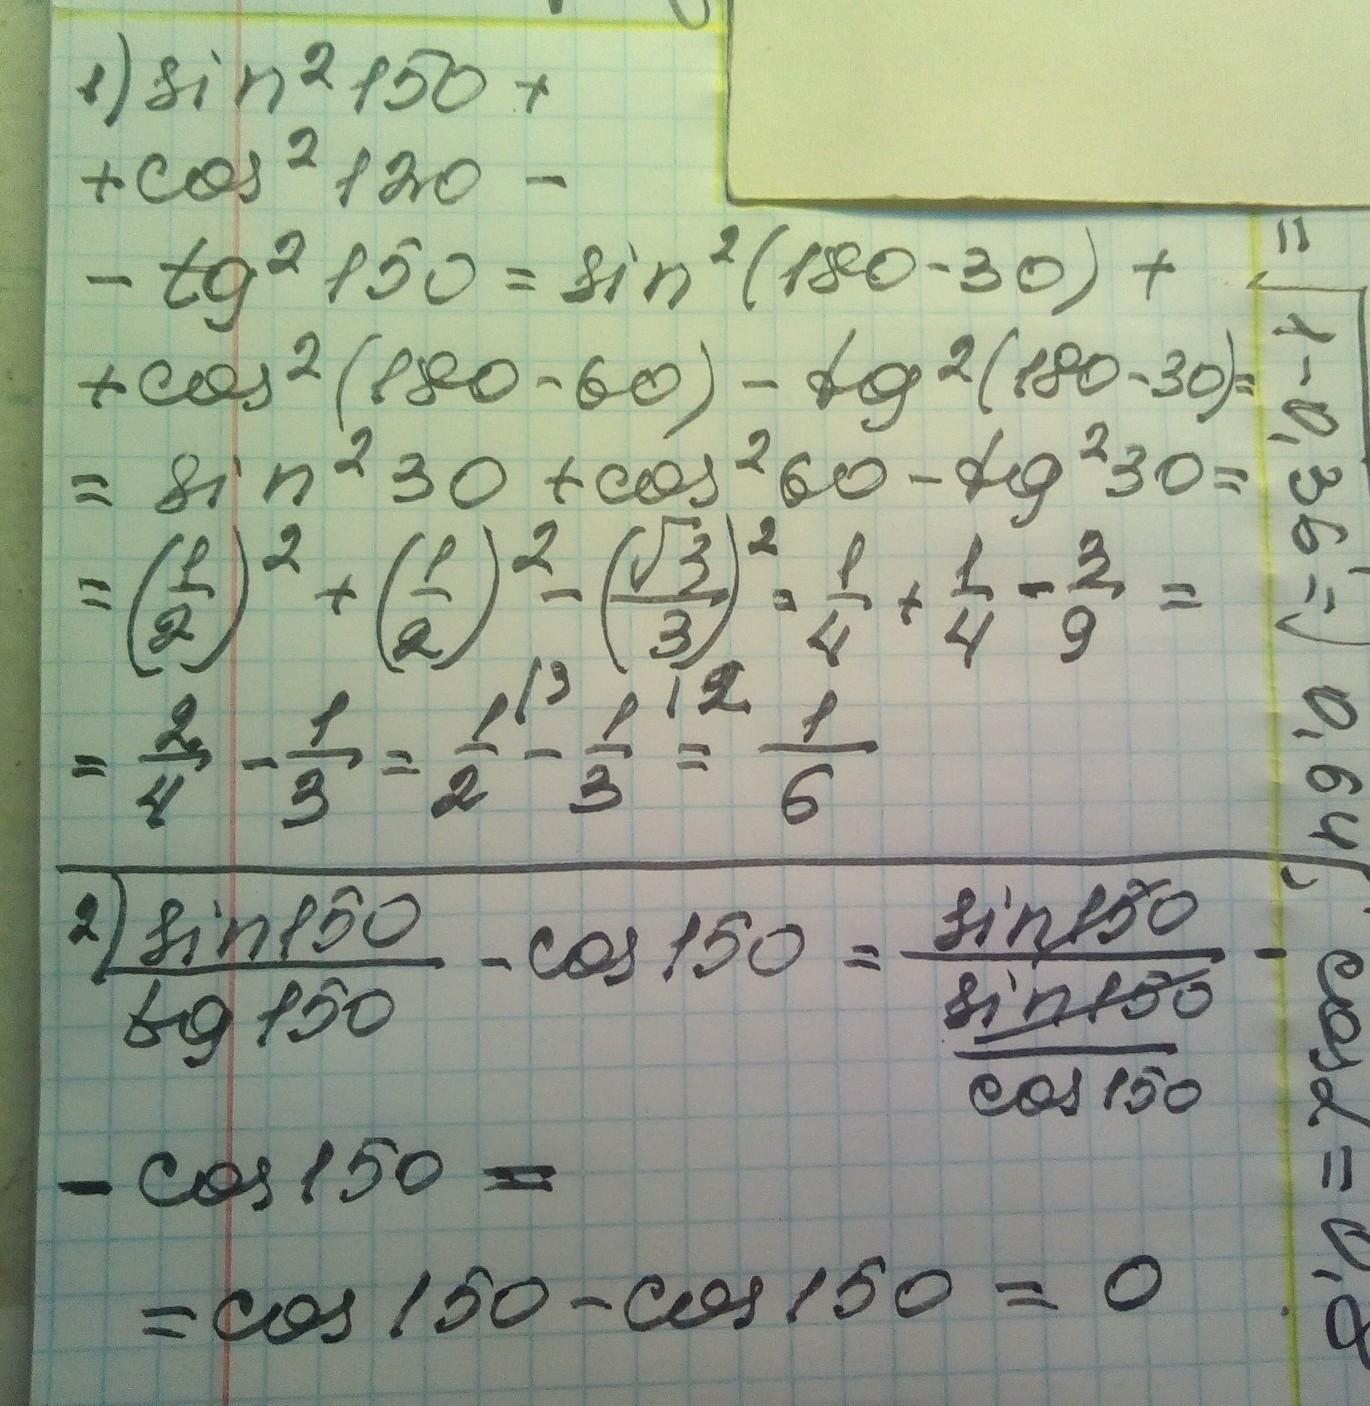 1) sin²150 +
+ cos²120 -
- tg²150 = sin²(180-30) +
+ cos²(180-60) - tg²(180-30) =
= sin²30 + cos²60 - tg²30 =
= (1/2)² + (1/2)² - (√3/3)² = 1/4 + 1/4 - 3/9 =
= 2/4 - 1/3 = 1/2 |3 - 1/3 |2 = 1/6
2) sin150/tg150 - cos150 = sin150/(sin150/cos150) -
- cos150 =
= cos150 - cos150 = 0
= 1-0,36 = 0,64
cosL = 0,8